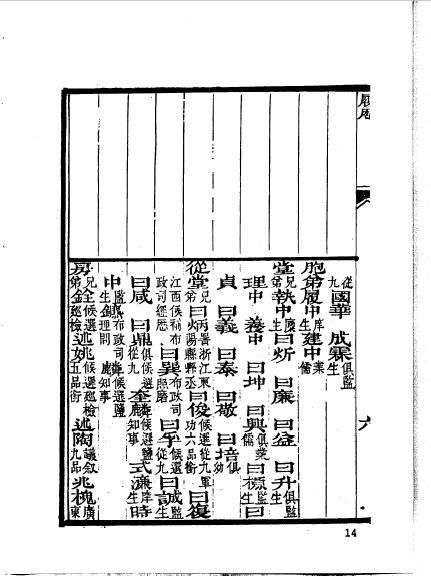 履歷
六
從九國華 成霖俱監生
胞弟履中庠生建中業儒
堂兄弟執中廩生曰炘 曰廉 曰益 曰升俱監生
理中 義中 曰坤 曰興俱業儒曰標監生曰
貞 曰義 曰泰 曰敬 曰培俱幼
從堂兄弟曰炳署浙江東陽縣縣丞曰俊候選從九軍功六品銜曰復
江西候補布政司經歷曰巽布政司照磨曰孚候選從九曰誠監生
曰咸 曰鼎俱候選從九奎麟候選鹽知事式濂庠生時
中監生 布政司理問 候選鹽知事
房兄弟 候選巡檢 述姚候選巡檢五品銜述陶議敘九品兆槐廣東
14